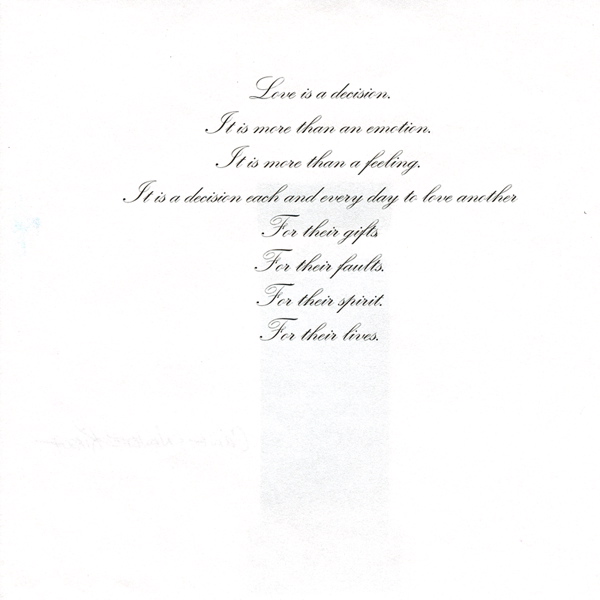 Love is a decision.
It is more than an emotion.
It is more than a feeling.
It is a decision each and every day to love another
For their gifts
For their faults.
For their spirit.
For their lives.